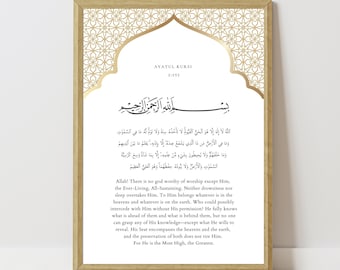 AYATUL KURSI
2:255
بِسْمِ اللَّهِ الرَّحْمَٰنِ الرَّحِيمِ
اللَّهُ لَا إِلَٰهَ إِلَّا هُوَ الْحَيُّ الْقَيُّومُ لَا تَأْخُذُهُ سِنَةٌ وَلَا نَوْمٌ لَهُ مَا فِي السَّمَاوَاتِ
وَمَا فِي الْأَرْضِ مَنْ ذَا الَّذِي يَشْفَعُ عِنْدَهُ إِلَّا بِإِذْنِهِ يَعْلَمُ مَا بَيْنَ أَيْدِيهِمْ
وَمَا خَلْفَهُمْ وَلَا يُحِيطُونَ بِشَيْءٍ مِنْ عِلْمِهِ إِلَّا بِمَا شَاءَ وَسِعَ كُرْسِيُّهُ السَّمَاوَاتِ
وَالْأَرْضَ وَلَا يَئُودُهُ حِفْظُهُمَا وَهُوَ الْعَلِيُّ الْعَظِيمُ
Allah! There is no god worthy of worship except Him,
the Ever-Living, All-Sustaining. Neither drowsiness nor
sleep overtakes Him. To Him belongs whatever is in the
heavens and whatever is on the earth. Who could possibly
intercede with Him without His permission? He fully knows
what is ahead of them and what is behind them, but no one
can grasp any of His knowledge—except what He wills to
reveal. His Seat encompasses the heavens and the earth,
and the preservation of both does not tire Him.
For He is the Most High, the Greatest.